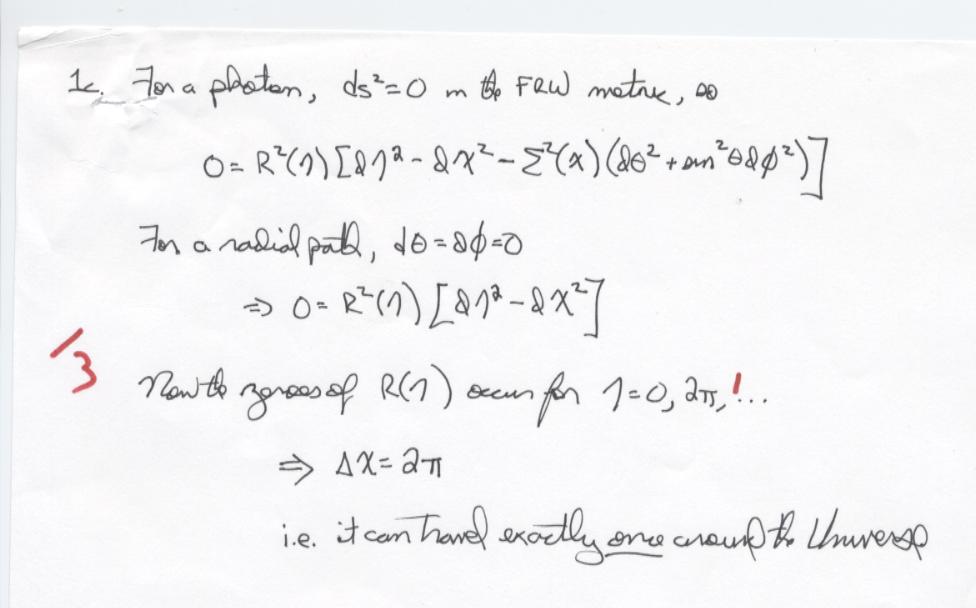 1c. For a photon, ds²=0 in the FRW metric, so
0 = R²(η)[dη² - dχ² - Σ²(χ)(dθ² + sin²θdϕ²)]
For a radial path, dθ = dϕ = 0
⇒ 0 = R²(η)[dη² - dχ²]
/3
Now the zeroes of R(η) occur for η=0, 2π, !...
⇒ Δχ = 2π
i.e. it can travel exactly once around the Universe